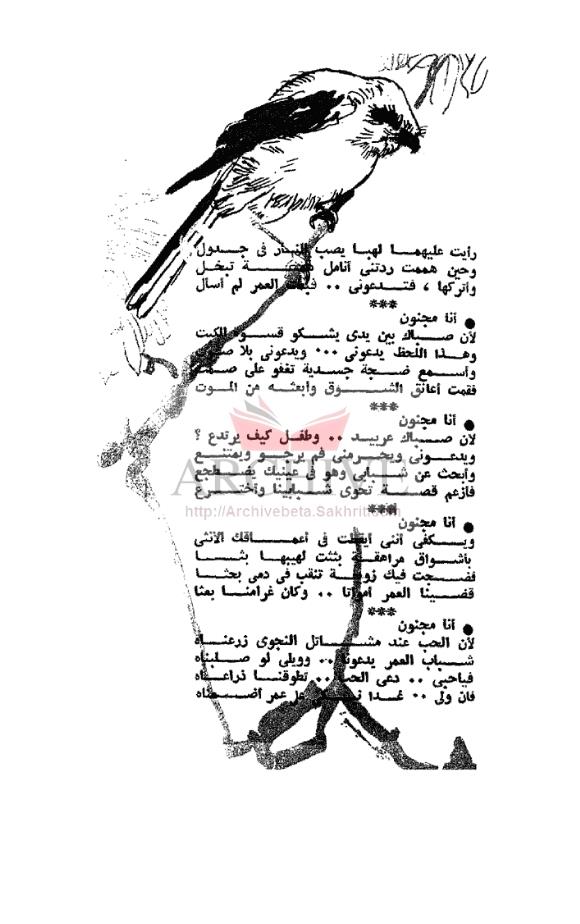 رأيت عليهما لهبا يصب النار فى جدول
وحين هممت ردتنى أنامل تبخل
وأتركها ، فتدعونى .. العمر لم أسأل
***
● أنا مجنون
لأن صباك بين يدى يشكو قسوة الكبت
وهذا اللحظ يدعونى ... ويدعونى بلا صوت
وأسمع ضجة جسدية تغفو على صمت
فقمت أعانق الشوق وأبعثه من الموت
***
● أنا مجنون
لأن صباك عربيد .. وطفل كيف يرتدع ؟
ويدعونى ويحرمنى فم يرجو ويمتنع
وأبحث عن شبابى وهو فى عينيك يضطجع
فأزعم قصة تحوى شبابينا وأخترع
ARCHIVE
http://Archivebeta.Sakhrit.com
***
● أنا مجنون
ويكفى أننى أيقظت فى أعماقك الأنثى
بأشواق مراهقة بثثت لهيبها بثا
ففجت فيك زوبعة تنقب فى دمى بحثا
قضينا العمر أمواتا .. وكان غرامنا بعثا
***
● أنا مجنون
لأن الحب عند مشاتل النجوى زرعناه
شباب العمر يدعونا .. وويلى لو صلبناه
فياحبى .. دعى الحب .. تطوقنا ذراعاه
فان ولى .. غدا على عمر أضعناه